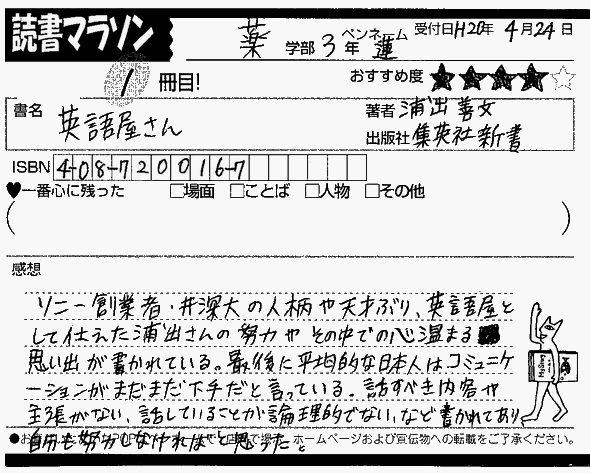 読書マラソン
薬 学部 3 年 ペンネーム 蓮 受付日 H20年 4月24日
1 冊目! おすすめ度 ★★★★☆
書名 英語屋さん
著者 浦出善文
出版社 集英社新書
ISBN 4-08-720016-7
♥一番心に残った □場面 □ことば □人物 □その他
感想
ソニー創業者・井深大の人柄や天才ぶり、英語屋と
して仕えた浦出さんの努力や その中での心温まる
思い出が書かれている。最後に平均的な日本人はコミュニケ
ーションがまだまだ下手だと言っている。話すべき内容や
主張がない、話していることが論理的でない、など書かれてあり
自分も努力しなければと思ったと
ホームページおよび宣伝物への転載をご了承ください。